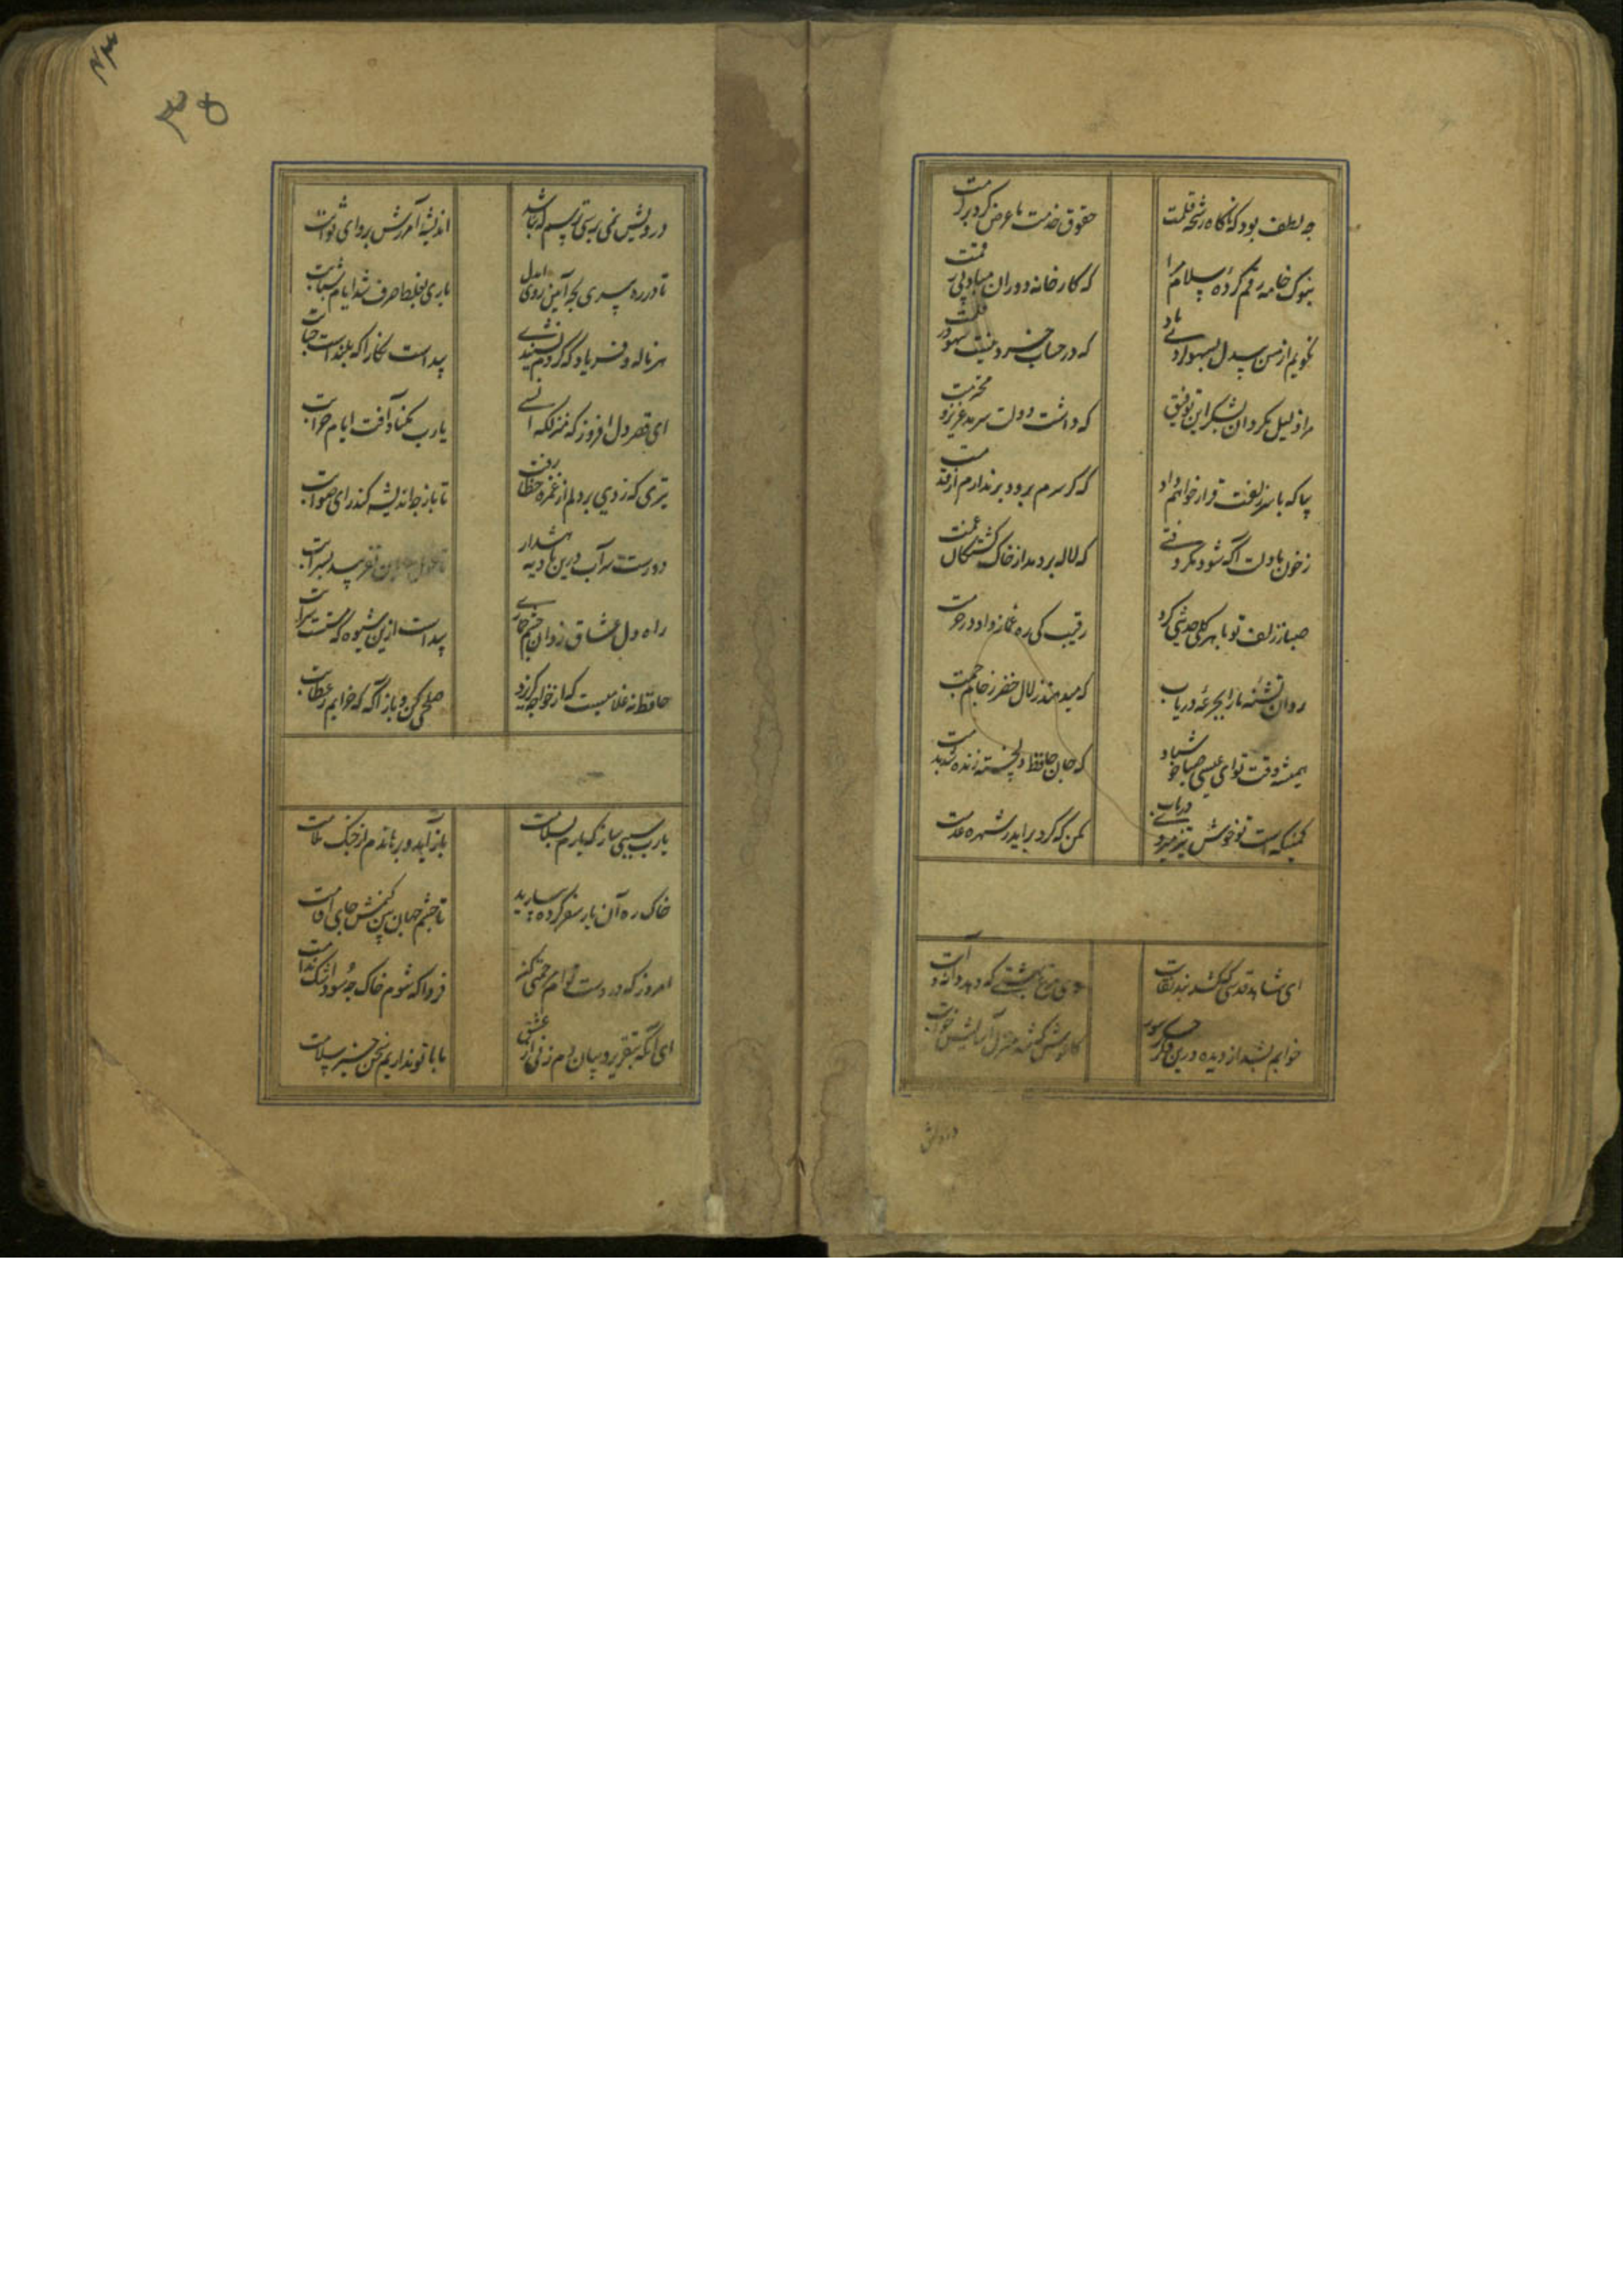 چه لطف بود که ناگاه رشحه قلمت
حقوق خدمت ما عرض کرد بر کرمت
بنوک خامه رقم کرده سلام مرا
که کارخانه دوران مباد بی رقمت
نکویم از من بیدل بسهو کردی یاد
که در حساب خرد نیست سهو در قلمت
مرا ذلیل مکردان بشکر این توفیق
که داشت دولت سرمد عزیز و محترمت
بیا که با سر زلفت قرار خواهم داد
که کر سرم برود بر ندارم از قدمت
ز خون ما دلت آکه شود مکر وقتی
که لاله بر دمد از خاک کشتکان غمت
صبا ز زلف تو با هر کلی حدیثی کرد
رقیب کی ره غماز داد در حرمت
روان تشنه ما را بجرعه دریاب
که میدهند زلال خضر ز جام جمت
همیشه وقت تو ای عیسی صبا خوش باد
که جان حافظ دلخسته زنده شد بدمت
کمینکه است تو خوش تیز میروی دریاب
مکن که کرد براید ز شهره عدمت
ای شاهد قدسی که کشد بند نقابت
وی مرغ بهشتی که دهد دانه و آبت
خوابم بشد از دیده درین فکر جگرسوز
کاغوش که شد منزل آسایش خوابت
درویش
۳۵
درویش نمی پرسی و ترسم که نباشد
اندیشه آمرزش و پروای ثوابت
تا در ره پیری بچه آیین روی ای دل
باری بغلط صرف شد ایام شبابت
هر ناله و فریاد که کردم نشنیدی
پیداست نکارا که بلندست جنابت
ای قصر دل افروز که منزلکه انسی
یارب مکناد آفت ایام خرابت
تیری که زدی بر دلم از غمزه خطا رفت
تا باز چه اندیشه کند رای صوابت
دورست سر آب درین بادیه هشدار
تا غول بیابان نفریبد بسرابت
راه دل عشاق زد آن چشم خماری
پیداست ازین شیوه که مستست شرابت
حافظ نه غلامیست که از خواجه کریزد
صلحی کن و باز آ که خرابم ز عتابت
یارب سببی ساز که یارم بسلامت
باز آید و برهاندم از چنک ملامت
خاک ره آن یار سفر کرده بیارید
تا چشم جهان بین کنمش جای اقامت
امروز که در دست توام مرحمتی کن
فردا که شوم خاک چه سود اشک ندامت
ای آنکه بتقریر و بیان دم زنی از عشق
ما با تو نداریم سخن خیر و سلامت